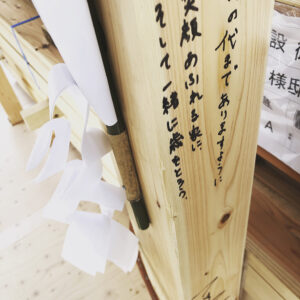 の代まで ありますように
笑顔 あふれる家に
そして 一緒に歳をとろう。
設
様邸
A